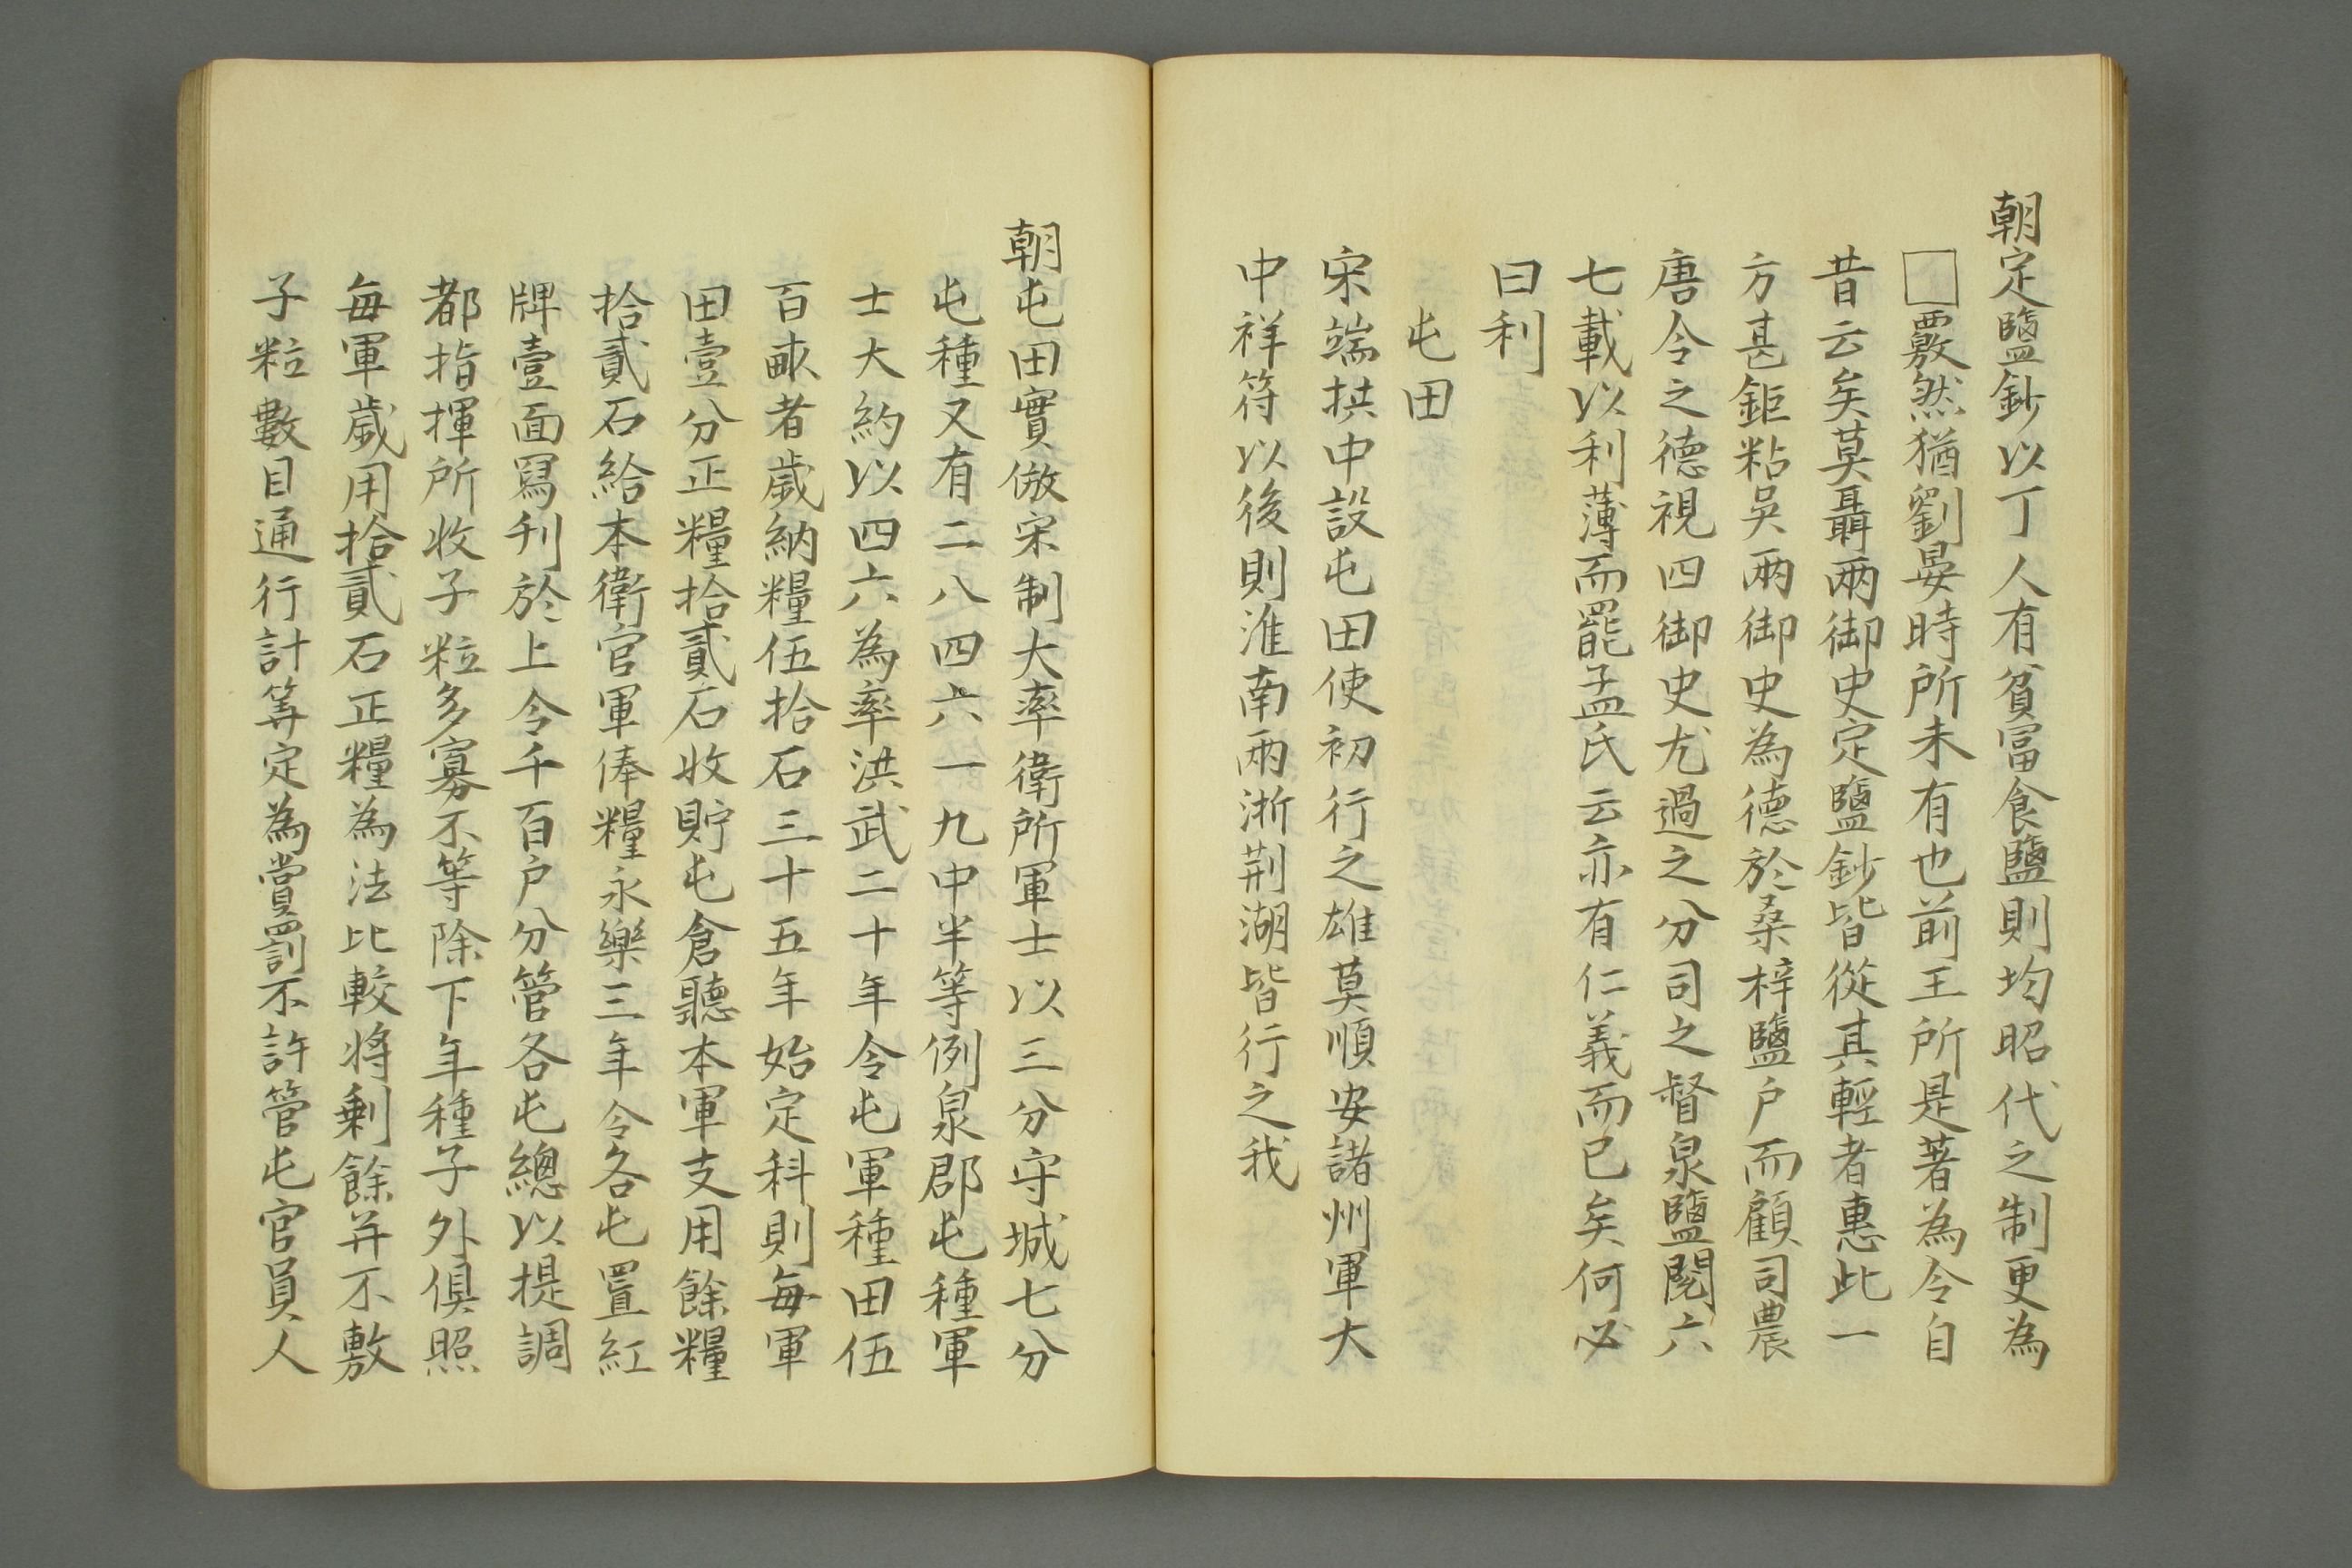 朝定鹽鈔以丁人有貧富食鹽則均昭代之制更為
□覈然猶劉晏時所未有也前王所是著為令自
昔云矣莫聶兩御史定鹽鈔皆從其輕者惠此一
方甚鉅粘吳兩御史為德於桑梓鹽戶而顧司農
唐令之德視四御史尤過之分司之督泉鹽閱六
七載以利薄而罷孟氏云亦有仁義而已矣何必
曰利
屯田
宋端拱中設屯田使初行之雄莫順安諸州軍大
中祥符以後則淮南兩浙荆湖皆行之我
朝屯田實倣宋制大率衛所軍士以三分守城七分
屯種又有二八四六一九中半等例泉郡屯種軍
士大約以四六為率洪武二十年令屯軍種田伍
百畝者歲納糧伍拾石三十五年始定科則每軍
田壹分正糧拾貳石收貯屯倉聽本軍支用餘糧
拾貳石給本衛官軍俸糧永樂三年令各屯置紅
牌壹面寫刊於上令千百戶分管各屯總以提調
都指揮所收子粒多寡不等除下年種子外俱照
每軍歲用拾貳石正糧為法比較將剩餘并不敷
子粒數目通行計筭定為賞罰不許管屯官員人